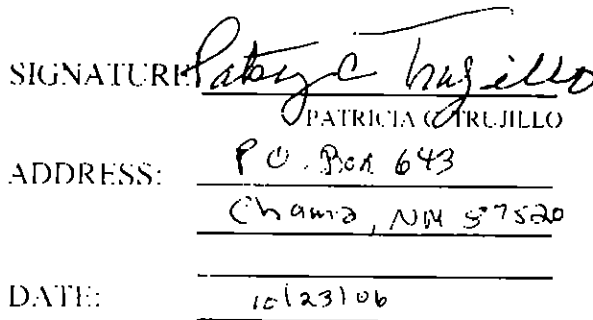 SIGNATURE Patsy C Trujillo
PATRICIA C TRUJILLO
ADDRESS: P O. Box 643
Chama, NM 87520
DATE: 10/23/06